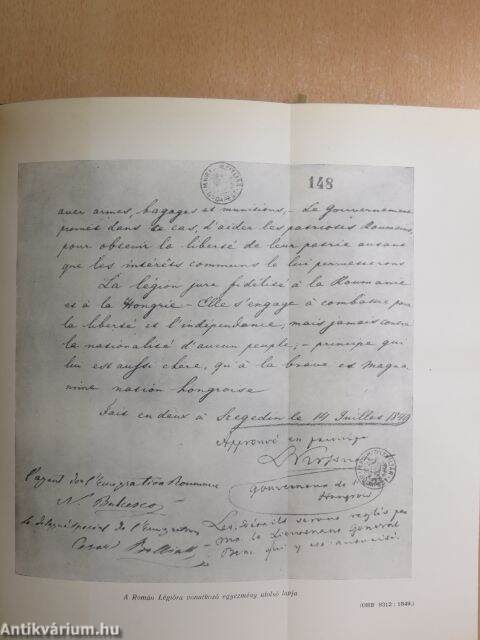 148
avec armes, bagages et munitions, – Le Gouvernement
promet dans ce cas, d'aider les patriotes Roumains,
pour obtenir la liberté de leur patrie autant
que les intérêts communs le lui permetterons
La légion jure fidélité à la Roumanie
et à la Hongrie – Elle s'engage à combattre pour
la liberté et l'indépendance, mais jamais contre
la nationalité d'aucun peuple; – principe qui
lui est aussi chère, qu'à la brave et magna
nime nation hongroise
Fait en deux à Szegedin le 14 Juillet 1849
Approuvé en principe
gouverneur de la
Hongrie
l'agent de l'émigration Roumaine
N. Balcesco
le délégué spécial de l'Emigration
Cesar Bolliac
Les détails seront reglés par
Mr le Lieutenant Général
Bem qui y est autorisé.
A Román Légióra vonatkozó egyezmény utolsó lapja
(OHB 9312 : 1849.)
Antikvárium.hu